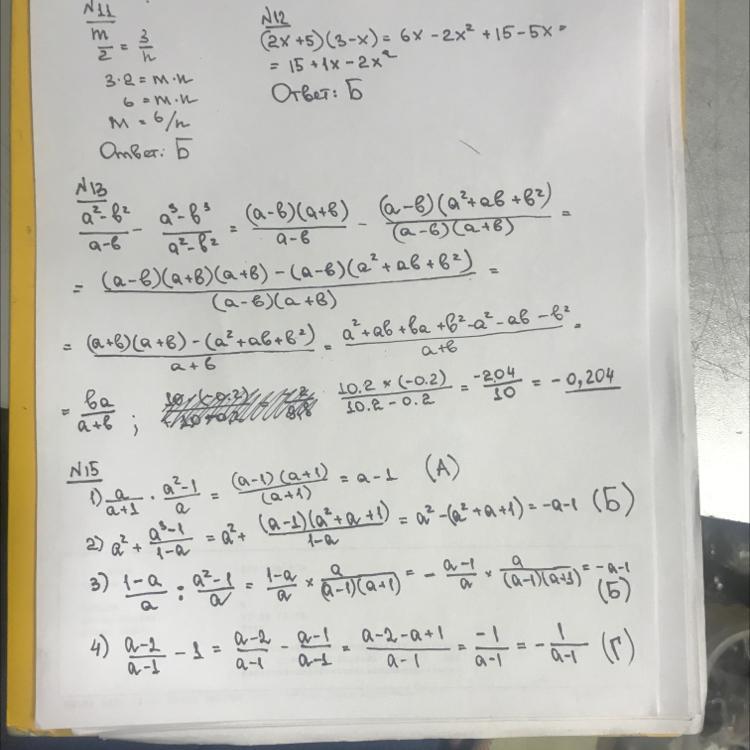 N11
m/2 = 3/n
3·2 = m·n
6 = m·n
M = 6/n
Ответ: Б
N12
(2x+5)(3-x) = 6x - 2x² + 15 - 5x =
= 15 + 1x - 2x²
Ответ: Б
N13
(a²-в²)/(a-в) - (a³-в³)/(a²-в²) = ((a-в)(a+в))/(a-в) - ((a-в)(a²+aв+в²))/((a-в)(a+в)) =
= ((a-в)(a+в)(a+в) - (a-в)(a²+aв+в²))/((a-в)(a+в)) =
= ((a+в)(a+в) - (a²+aв+в²))/(a+в) = (a²+aв+вa+в²-a²-aв-в²)/(a+в) =
= вa/(a+в) ; (10.2 × (-0.2))/(10.2-0.2) = -2.04/10 = -0,204
N15
1) a/(a+1) · (a²-1)/a = ((a-1)(a+1))/(a+1) = a-1 (А)
2) a² + (a³-1)/(1-a) = a² + ((a-1)(a²+a+1))/(1-a) = a² - (a²+a+1) = -a-1 (Б)
3) (1-a)/a : (a²-1)/a = (1-a)/a × a/((a-1)(a+1)) = - (a-1)/a × a/((a-1)(a+1)) = -a-1
(Б)
4) (a-2)/(a-1) - 1 = (a-2)/(a-1) - (a-1)/(a-1) = (a-2-a+1)/(a-1) = -1/(a-1) = - 1/(a-1) (Г)